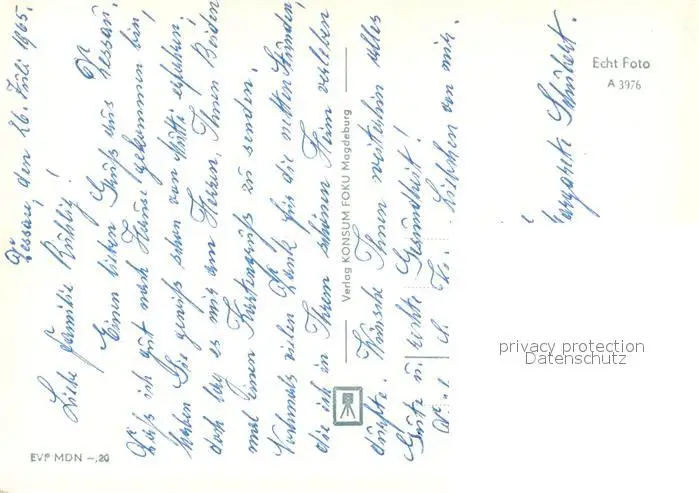 Dessau, den 26. Juli 1965.
Liebe Familie Rühlig!
Einen lieben Gruß aus Dessau.
Daß ich gut nach Hause gekommen bin,
haben Sie gewiß schon von Mutti erfahren,
doch lag es mir am Herzen, Ihnen Beiden
mal einen Kartengruß zu senden.
Nochmals vielen Dank für die netten Stunden,
die ich in Ihrem schönen Heim verleben
durfte. Wünsche Ihnen weiterhin alles
Gute u. rechte Gesundheit!
von mir.
Margarete Schubert.
Verlag KONSUM FOKU Magdeburg
Echt Foto
A 3976
EVP MDN -,20
privacy protection
Datenschutz